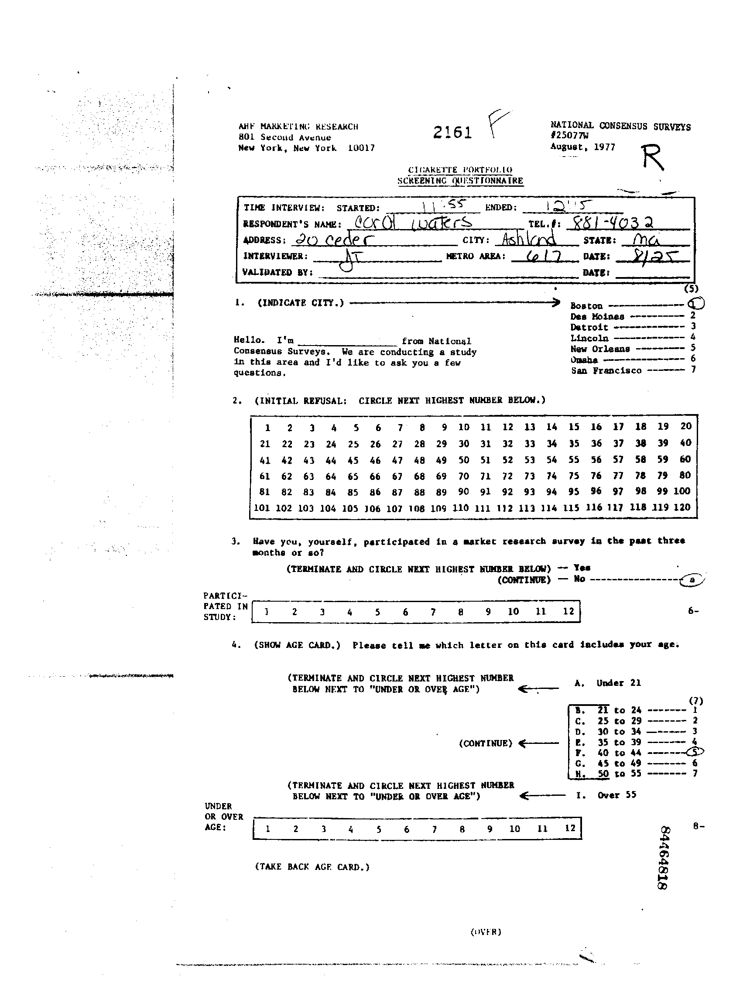 AHF MARKETING RESEARCH 2161 F NATIONAL CONSENSUS SURVEYS
801 Second Avenue #25077W
New York, New York 10017 August, 1977 R
CIGARETTE PORTFOLIO
SCREENING QUESTIONNAIRE
TIME INTERVIEW: STARTED: 11:55 ENDED: 12:15
RESPONDENT'S NAME: Carol Waters TEL.#: 881-4032
ADDRESS: 20 Ceder CITY: Ashland STATE: Ma
INTERVIEWER: JT METRO AREA: 617 DATE: 8/25
VALIDATED BY: DATE:
(5)
1. (INDICATE CITY.) Boston ---------- 1
Des Moines ---------- 2
Detroit ------------- 3
Hello. I'm ____________ from National Lincoln ------------- 4
Consensus Surveys. We are conducting a study New Orleans --------- 5
in this area and I'd like to ask you a few Omaha --------------- 6
questions. San Francisco ------- 7
2. (INITIAL REFUSAL: CIRCLE NEXT HIGHEST NUMBER BELOW.)
1 2 3 4 5 6 7 8 9 10 11 12 13 14 15 16 17 18 19 20
21 22 23 24 25 26 27 28 29 30 31 32 33 34 35 36 37 38 39 40
41 42 43 44 45 46 47 48 49 50 51 52 53 54 55 56 57 58 59 60
61 62 63 64 65 66 67 68 69 70 71 72 73 74 75 76 77 78 79 80
81 82 83 84 85 86 87 88 89 90 91 92 93 94 95 96 97 98 99 100
101 102 103 104 105 106 107 108 109 110 111 112 113 114 115 116 117 118 119 120
3. Have you, yourself, participated in a market research survey in the past three
months or so?
(TERMINATE AND CIRCLE NEXT HIGHEST NUMBER BELOW) -- Yes
(CONTINUE) -- No ---------------
PARTICI-
PATED IN
STUDY: 1 2 3 4 5 6 7 8 9 10 11 12 6-
4. (SHOW AGE CARD.) Please tell me which letter on this card includes your age.
(TERMINATE AND CIRCLE NEXT HIGHEST NUMBER
BELOW NEXT TO "UNDER OR OVER AGE") A. Under 21
(7)
B. 21 to 24 ------- 1
C. 25 to 29 ------- 2
D. 30 to 34 ------- 3
(CONTINUE) E. 35 to 39 ------- 4
F. 40 to 44 ------- 5
G. 45 to 49 ------- 6
H. 50 to 55 ------- 7
(TERMINATE AND CIRCLE NEXT HIGHEST NUMBER
BELOW NEXT TO "UNDER OR OVER AGE") I. Over 55
UNDER
OR OVER
AGE: 1 2 3 4 5 6 7 8 9 10 11 12 8-
(TAKE BACK AGE CARD.)
84464818
(OVER)